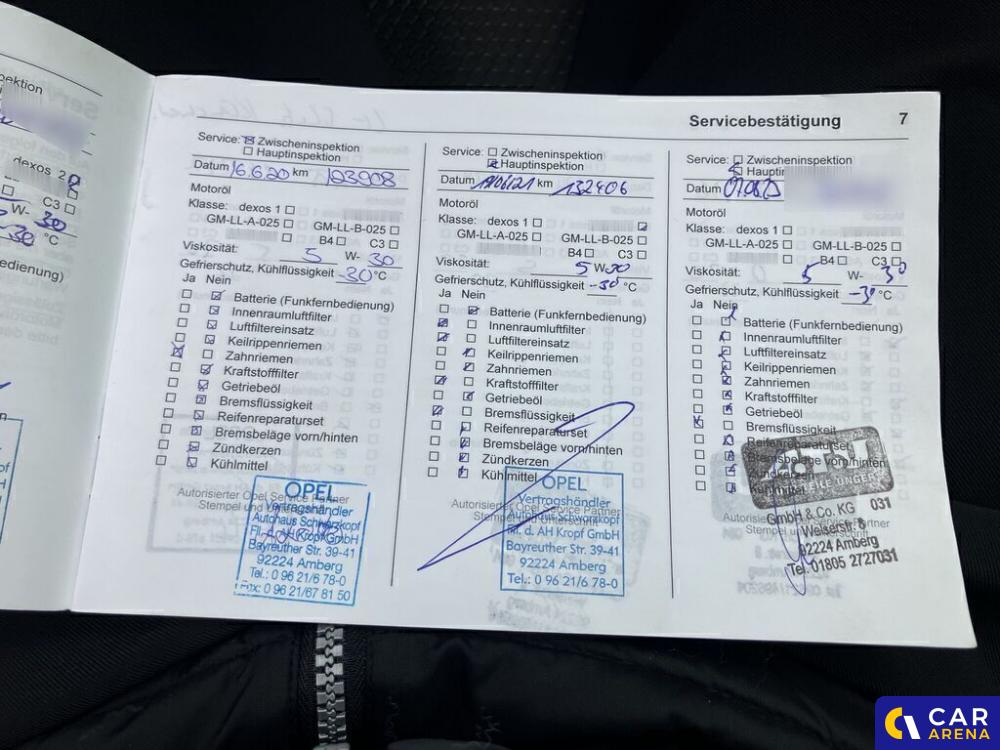 pektion
dexos 2
C3
W- 30
-30 °C
edienung)
Servicebestätigung 7
Service: Zwischeninspektion
Hauptinspektion
Datum 16.6.20 km 123908
Motoröl
Klasse: dexos 1
GM-LL-A-025 GM-LL-B-025
B4 C3
Viskosität: 5 W- 30
Gefrierschutz, Kühlflüssigkeit -30°C
Ja Nein
Batterie (Funkfernbedienung)
Innenraumluftfilter
Luftfiltereinsatz
Keilrippenriemen
Zahnriemen
Kraftstofffilter
Getriebeöl
Bremsflüssigkeit
Reifenreparaturset
Bremsbeläge vorn/hinten
Zündkerzen
Kühlmittel
Autorisierter Opel Service Partner
Stempel und
OPEL
Vertragshändler
Autohaus Schwarzkopf
Fil. d. AH Kropf GmbH
Bayreuther Str. 39-41
92224 Amberg
Tel.: 0 96 21/6 78-0
Fax: 0 96 21/67 81 50
Service: Zwischeninspektion
Hauptinspektion
Datum km 132406
Motoröl
Klasse: dexos 1
GM-LL-A-025 GM-LL-B-025
B4 C3
Viskosität: 5 W-30
Gefrierschutz, Kühlflüssigkeit -30 °C
Ja Nein
Batterie (Funkfernbedienung)
Innenraumluftfilter
Luftfiltereinsatz
Keilrippenriemen
Zahnriemen
Kraftstofffilter
Getriebeöl
Bremsflüssigkeit
Reifenreparaturset
Bremsbeläge vorn/hinten
Zündkerzen
Kühlmittel
Autorisierter Opel Service Partner
Stempel und Unterschrift
OPEL
Vertragshändler
Autohaus Schwarzkopf
Fil. d. AH Kropf GmbH
Bayreuther Str. 39-41
92224 Amberg
Tel.: 0 96 21/6 78-0
Service: Zwischeninspektion
Hauptin
Datum
Motoröl
Klasse: dexos 1
GM-LL-A-025 GM-LL-B-025
B4 C3
Viskosität: 5 W- 30
Gefrierschutz, Kühlflüssigkeit -30 °C
Ja Nein
Batterie (Funkfernbedienung)
Innenraumluftfilter
Luftfiltereinsatz
Keilrippenriemen
Zahnriemen
Kraftstofffilter
Getriebeöl
Bremsflüssigkeit
Reifenreparaturset
Bremsbeläge vorn/hinten
Zündkerzen
Kühlmittel
GmbH & Co. KG 031
Weiserstr. 8
92224 Amberg
Tel. 01805 2727031
CAR
ARENA